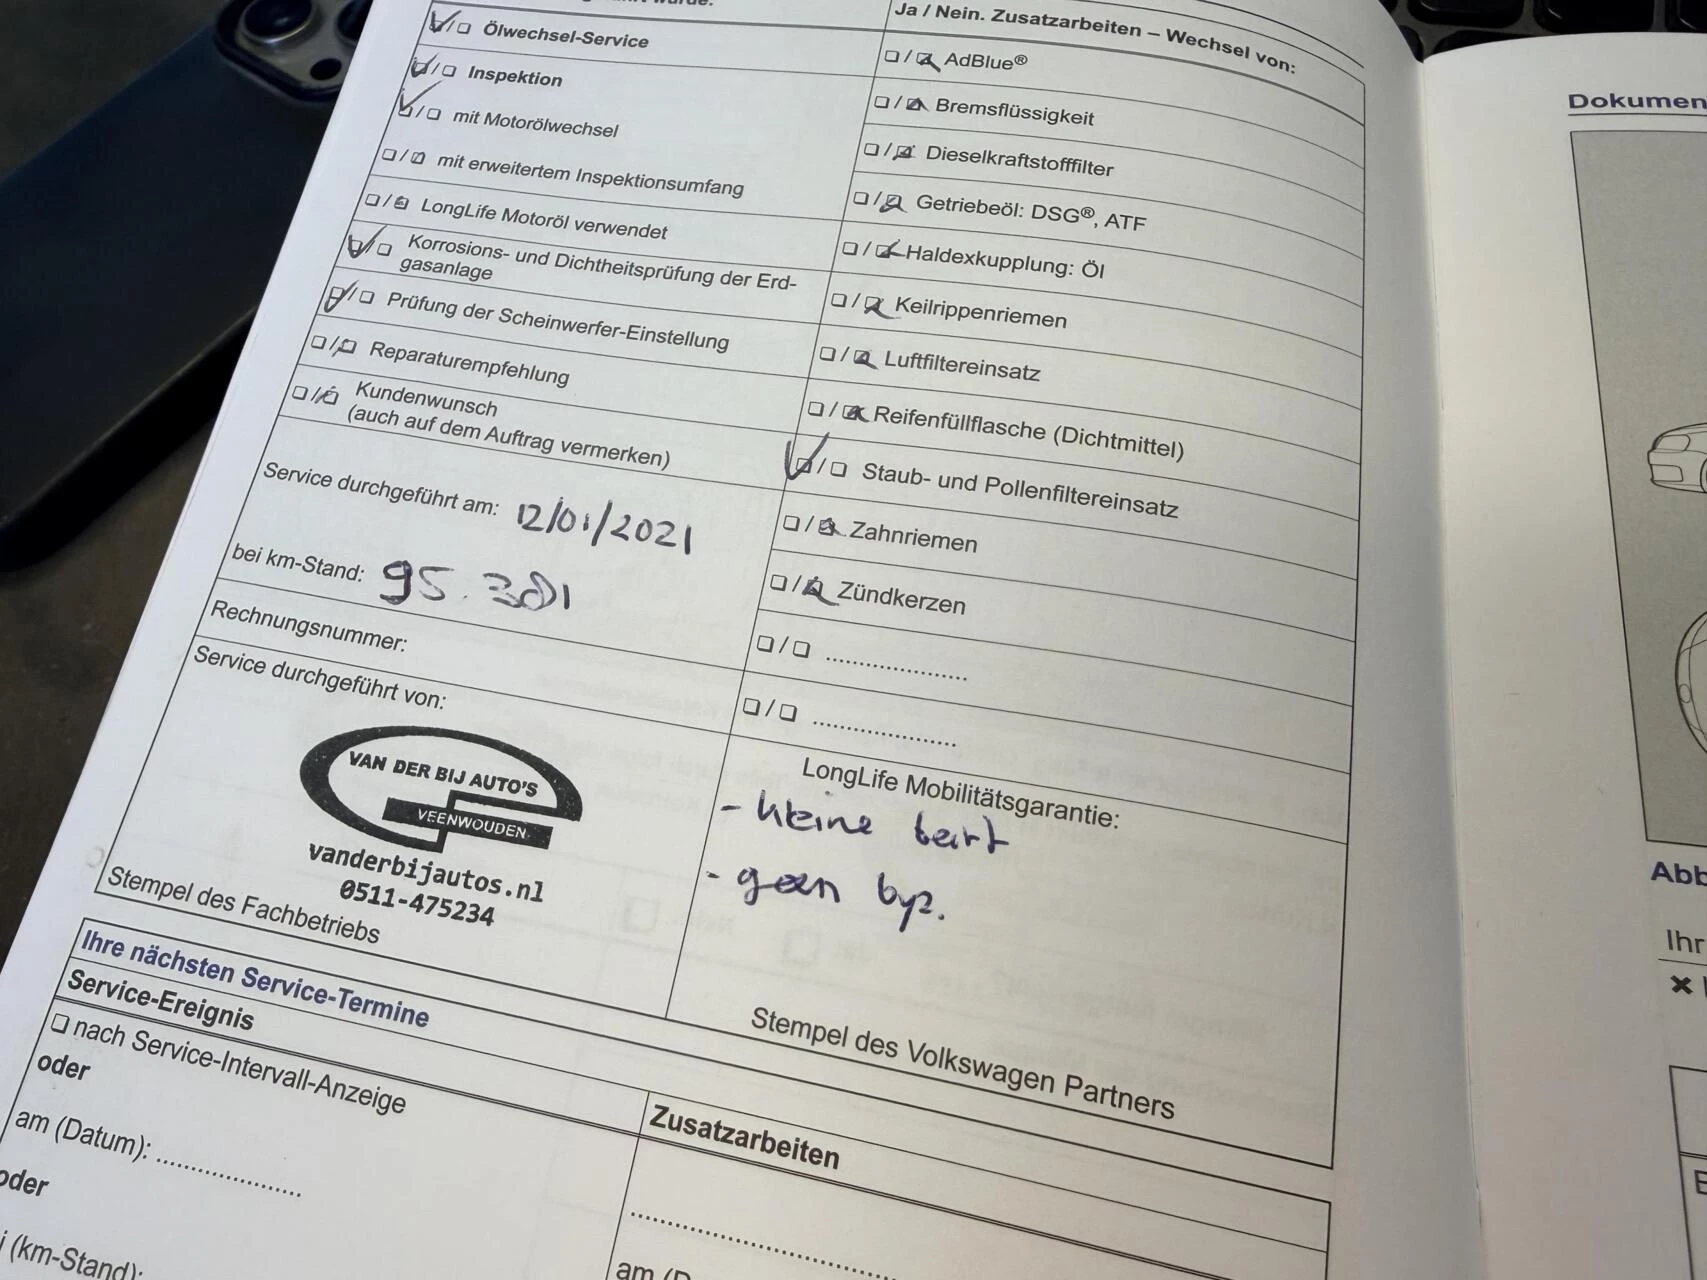 Ja / Nein. Zusatzarbeiten – Wechsel von:
Ölwechsel-Service
Inspektion
mit Motorölwechsel
mit erweitertem Inspektionsumfang
LongLife Motoröl verwendet
Korrosions- und Dichtheitsprüfung der Erd-
gasanlage
Prüfung der Scheinwerfer-Einstellung
Reparaturempfehlung
Kundenwunsch
(auch auf dem Auftrag vermerken)
AdBlue®
Bremsflüssigkeit
Dieselkraftstofffilter
Getriebeöl: DSG®, ATF
Haldexkupplung: Öl
Keilrippenriemen
Luftfiltereinsatz
Reifenfüllflasche (Dichtmittel)
Staub- und Pollenfiltereinsatz
Zahnriemen
Zündkerzen
Service durchgeführt am: 12/01/2021
bei km-Stand: 95.381
Rechnungsnummer:
Service durchgeführt von:
VAN DER BIJ AUTO'S
VEENWOUDEN
vanderbijautos.nl
0511-475234
Stempel des Fachbetriebs
LongLife Mobilitätsgarantie:
- kleine beurt
- geen byz.
Stempel des Volkswagen Partners
Ihre nächsten Service-Termine
Service-Ereignis
nach Service-Intervall-Anzeige
oder
am (Datum):
oder
(km-Stand):
Zusatzarbeiten
Dokumen
Abb
Ihr